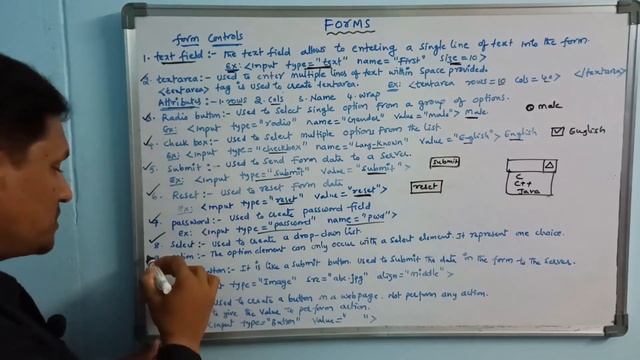 FORMS
form controls
1. text field :- the text field allows to entering a single line of text into the form.
Ex: <input type="text" name="First" size=10>
2. textarea :- Used to enter multiple lines of text within space provided.
<textarea> tag is used to create textarea. Ex: <textarea rows=10 cols=40> </textarea>
Attributes :- 1. rows 2. cols 3. Name 4. wrap
3. Radio button :- Used to select single option from a group of options.
Ex: <input type="radio" name="Gender" value="male"> male. male
4. check box :- Used to select multiple options from the list.
Ex: <input type="checkbox" name="Lang-known" value="English"> English English
5. Submit :- Used to send form data to a server.
Ex: <input type="submit" value="submit"> submit
6. Reset :- Used to reset form data
Ex: <input type="reset" value="reset"> reset
7. password :- Used to create password field
Ex: <input type="password" name="pwd">
C
C++
Java
8. Select :- Used to create a drop-down list
tion :- The option element can only occur with a select element. It represent one choice.
utton :- It is like a submit button. Used to submit the data in the form to the server.
type="Image" src="abc.jpg" align="middle">
used to create a button in a webpage. Not perform any action.
to give the value to perform action.
input type="Button" value=" ">